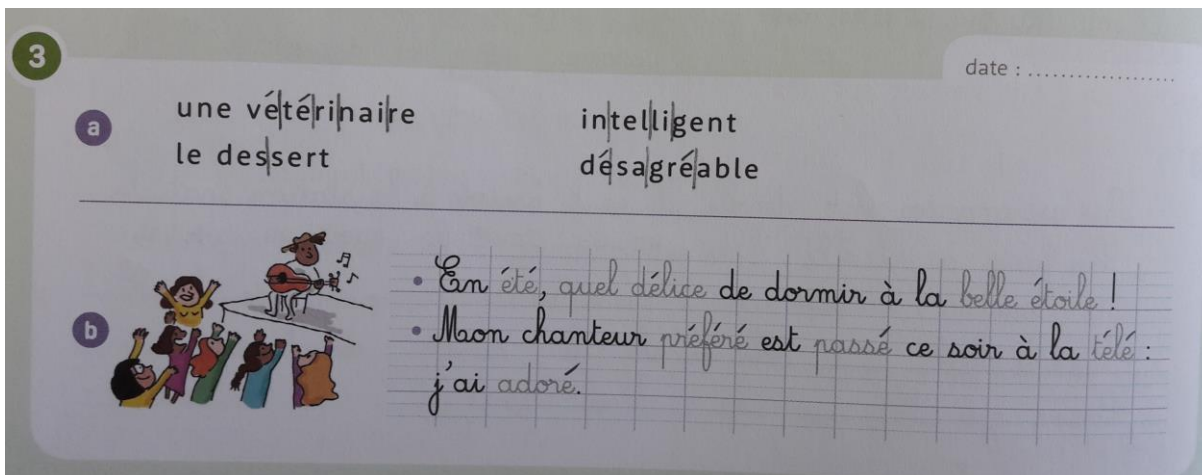 3
date : ...................
a
une vé|té|ri|nai|re
in|tel|li|gent
le des|sert
dé|sa|gré|able
b
• En été, quel délice de dormir à la belle étoile !
• Mon chanteur préféré est passé ce soir à la télé :
j'ai adoré.